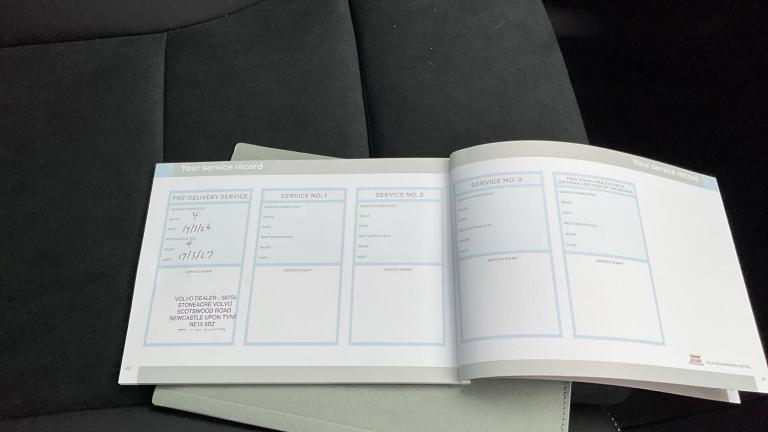 Your service record
PRE-DELIVERY SERVICE
SERVICE COMPLETED
MILES 4
DATE 19/3/26
NEXT SERVICE DUE
MILES 4
DATE 17/3/27
SERVICE STAMP
VOLVO DEALER - 5675
STONEACRE VOLVO
SCOTSWOOD ROAD
NEWCASTLE UPON TYNE
NE15 6BZ
SERVICE NO. 1
SERVICE COMPLETED
MILES
DATE
NEXT SERVICE DUE
MILES
DATE
SERVICE STAMP
SERVICE NO. 2
SERVICE COMPLETED
MILES
DATE
NEXT SERVICE DUE
MILES
DATE
SERVICE STAMP
Your service record
SERVICE NO. 3
SERVICE COMPLETED
MILES
DATE
NEXT SERVICE DUE
MILES
DATE
SERVICE STAMP
FREE VISUAL HEALTH CHECK
SERVICE COMPLETED
MILES
DATE
NEXT SERVICE DUE
MILES
DATE
SERVICE STAMP